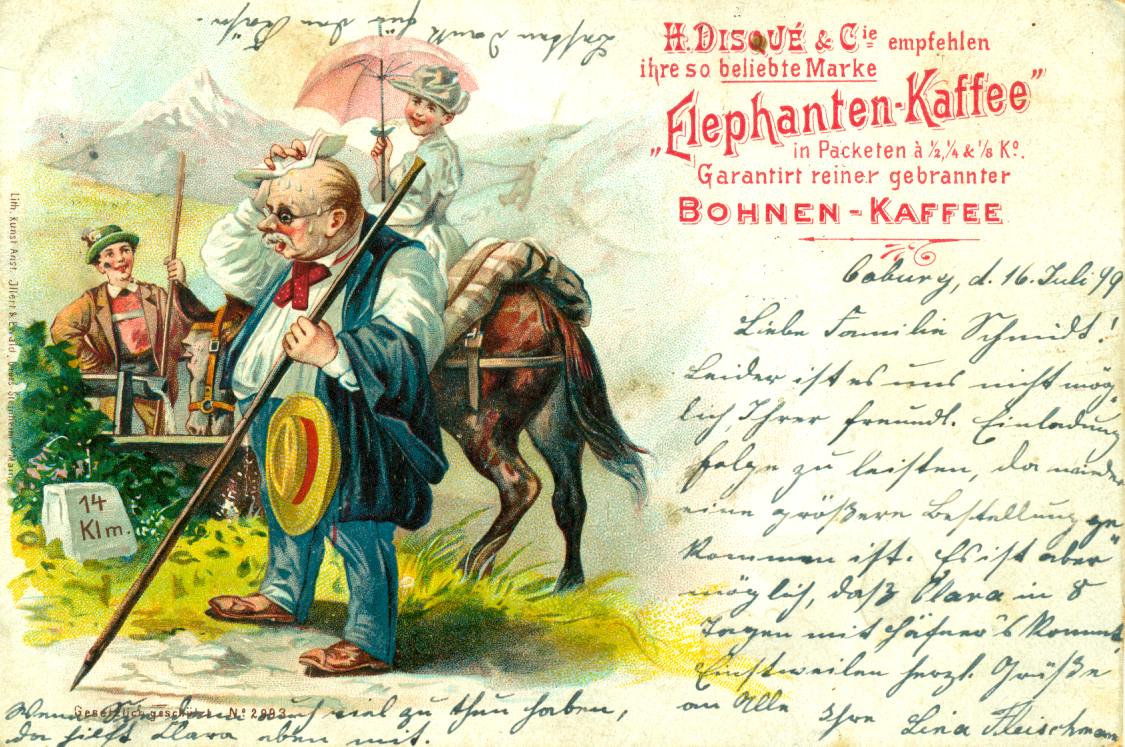 H. DISQUÉ & Cie empfehlen
ihre so beliebte Marke
„Elephanten-Kaffee”
in Packeten à ½, ¼ & ⅛ Ko.
Garantirt reiner gebrannter
BOHNEN-KAFFEE
Coburg, d. 16. Juli 99
Liebe Familie Schmidt!
Leider ist es uns nicht mög
lich, Ihrer freundl. Einladung
folge zu leisten, da wieder
eine größere Bestellung ge
kommen ist. Es ist aber
möglich, daß Clara in 8
Tagen mit Häfner's kommt
Einstweilen herzl. Grüße
an Alle Ihre Lina Fleischmann
Wenn auch viel zu thun haben,
da hilft Clara eben mit.
Besten Dank für den Käse.
14
Klm.
Gesetzlich geschützt. No 2993
Lith. Kunst Anst.